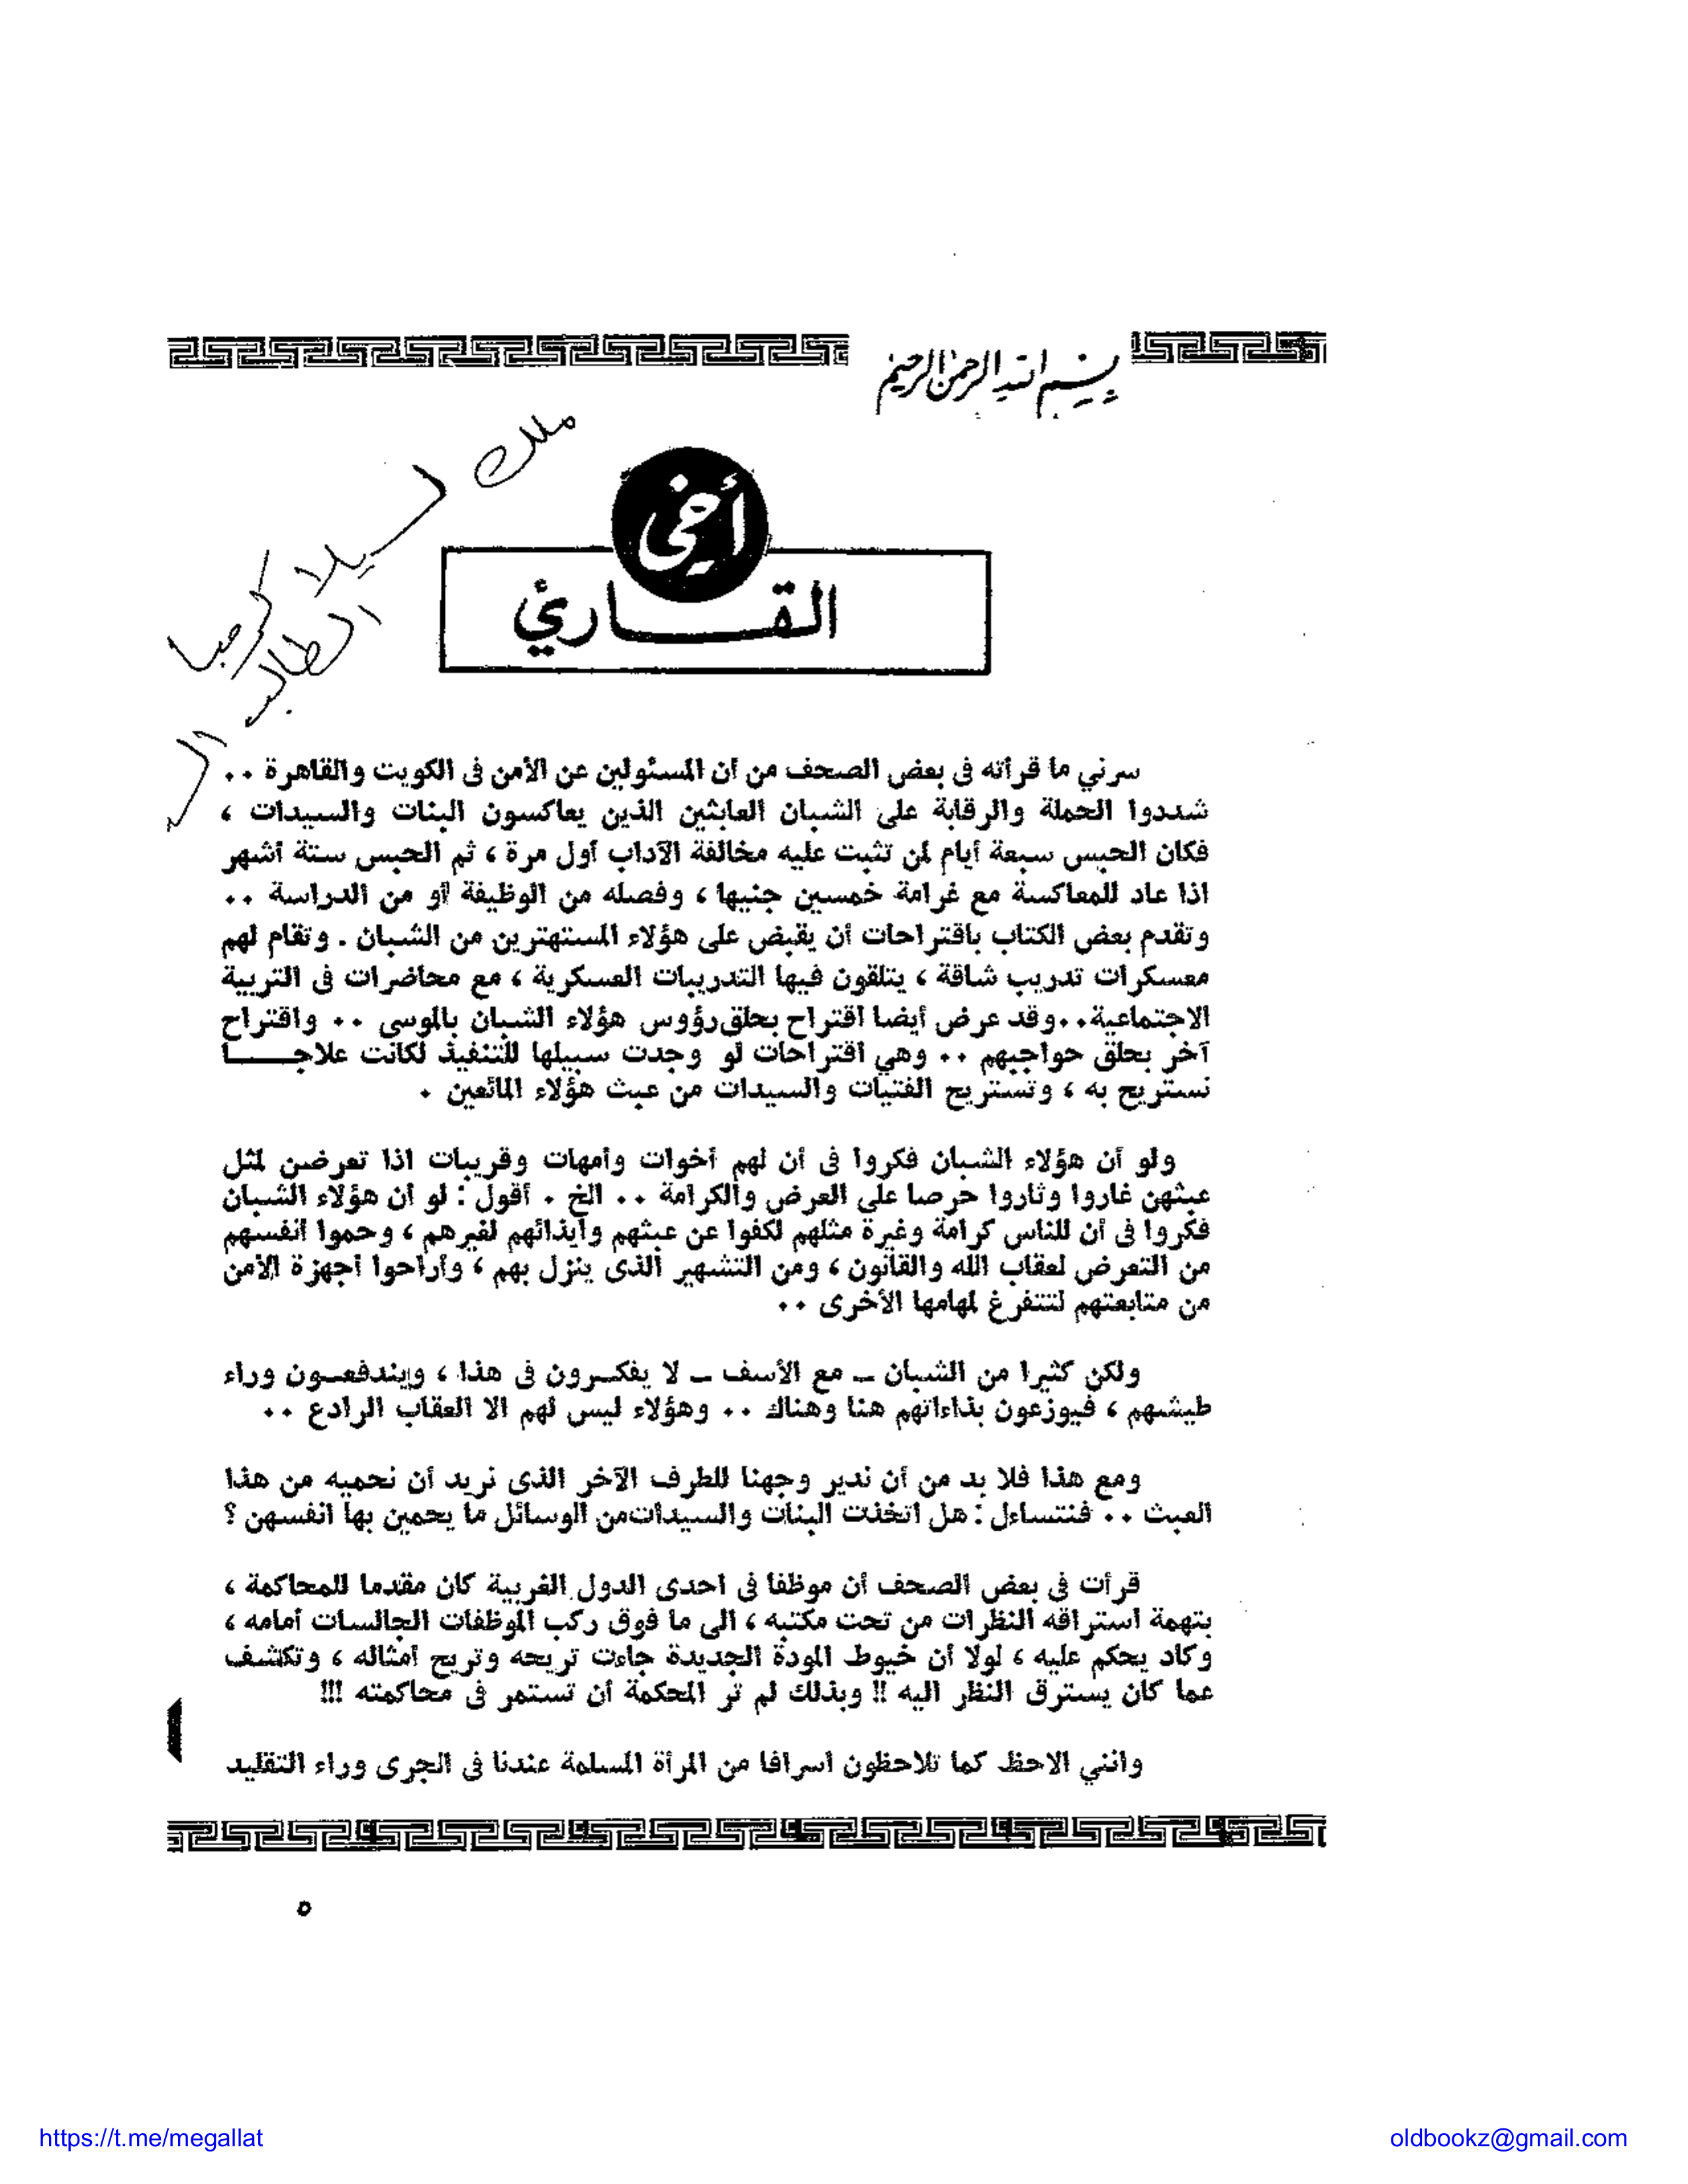 بسم الله الرحمن الرحيم
أخي
القارئ
سرني ما قرأته فى بعض الصحف من أن المسئولين عن الأمن فى الكويت والقاهرة ..
شددوا الحملة والرقابة على الشبان العابثين الذين يعاكسون البنات والسيدات ،
فكان الحبس سبعة أيام لمن تثبت عليه مخالفة الآداب أول مرة ، ثم الحبس ستة أشهر
اذا عاد للمعاكسة مع غرامة خمسين جنيها ، وفصله من الوظيفة أو من الدراسة ..
وتقدم بعض الكتاب باقتراحات أن يقبض على هؤلاء المستهترين من الشبان . وتقام لهم
معسكرات تدريب شاقة ، يتلقون فيها التدريبات العسكرية ، مع محاضرات فى التربية
الاجتماعية..وقد عرض أيضا اقتراح بحلق رؤوس هؤلاء الشبان بالموسى .. واقتراح
آخر بحلق حواجبهم .. وهي اقتراحات لو وجدت سبيلها للتنفيذ لكانت علاجـــا
نستريح به ، وتستريح الفتيات والسيدات من عبث هؤلاء المائعين .
ولو أن هؤلاء الشبان فكروا فى أن لهم أخوات وأمهات وقريبات اذا تعرضن لمثل
عبثهن غاروا وثاروا حرصا على العرض والكرامة .. الخ . أقول : لو أن هؤلاء الشبان
فكروا فى أن للناس كرامة وغيرة مثلهم لكفوا عن عبثهم وايذائهم لغيرهم ، وحموا أنفسهم
من التعرض لعقاب الله والقانون ، ومن التشهير الذى ينزل بهم ، وأراحوا أجهزة الأمن
من متابعتهم لتتفرغ لمهامها الأخرى ..
ولكن كثيرا من الشبان ــ مع الأسف ــ لا يفكـرون فى هذا ، ويندفعـون وراء
طيشهم ، فيوزعون بذاءاتهم هنا وهناك .. وهؤلاء ليس لهم الا العقاب الرادع ..
ومع هذا فلا بد من أن ندير وجهنا للطرف الآخر الذى نريد أن نحميه من هذا
العبث .. فنتساءل : هل اتخذت البنات والسيدات من الوسائل ما يحمين بها أنفسهن ؟
قرأت فى بعض الصحف أن موظفا فى احدى الدول الغربية كان مقدما للمحاكمة ،
بتهمة استراقه النظرات من تحت مكتبه ، الى ما فوق ركب الموظفات الجالسات أمامه ،
وكاد يحكم عليه ، لولا أن خيوط المودة الجديدة جاءت تريحه وتريح أمثاله ، وتكشف
عما كان يسترق النظر اليه !! وبذلك لم تر المحكمة أن تستمر فى محاكمته !!!
وانني الاحظ كما تلاحظون اسرافا من المرأة المسلمة عندنا فى الجرى وراء التقليد
٥
https://t.me/megallat
oldbookz@gmail.com